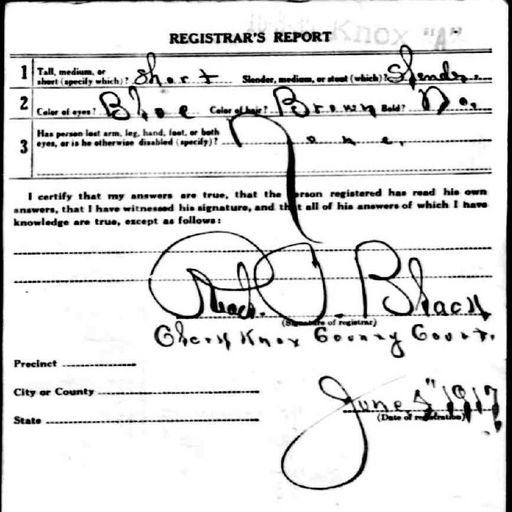 Knox "A"
REGISTRAR'S REPORT
1 Tall, medium, or short (specify which)? Short Slender, medium, or stout (which)? Slender
2 Color of eyes? Blue Color of hair? Brown Bald? No.
3 Has person lost arm, leg, hand, foot, or both eyes, or is he otherwise disabled (specify)? None.
I certify that my answers are true, that the person registered has read his own
answers, that I have witnessed his signature, and that all of his answers of which I have
knowledge are true, except as follows:
Black
(Signature of registrar)
Clerk Knox County Court.
Precinct
City or County
June 5" 1917
State
(Date of registration)